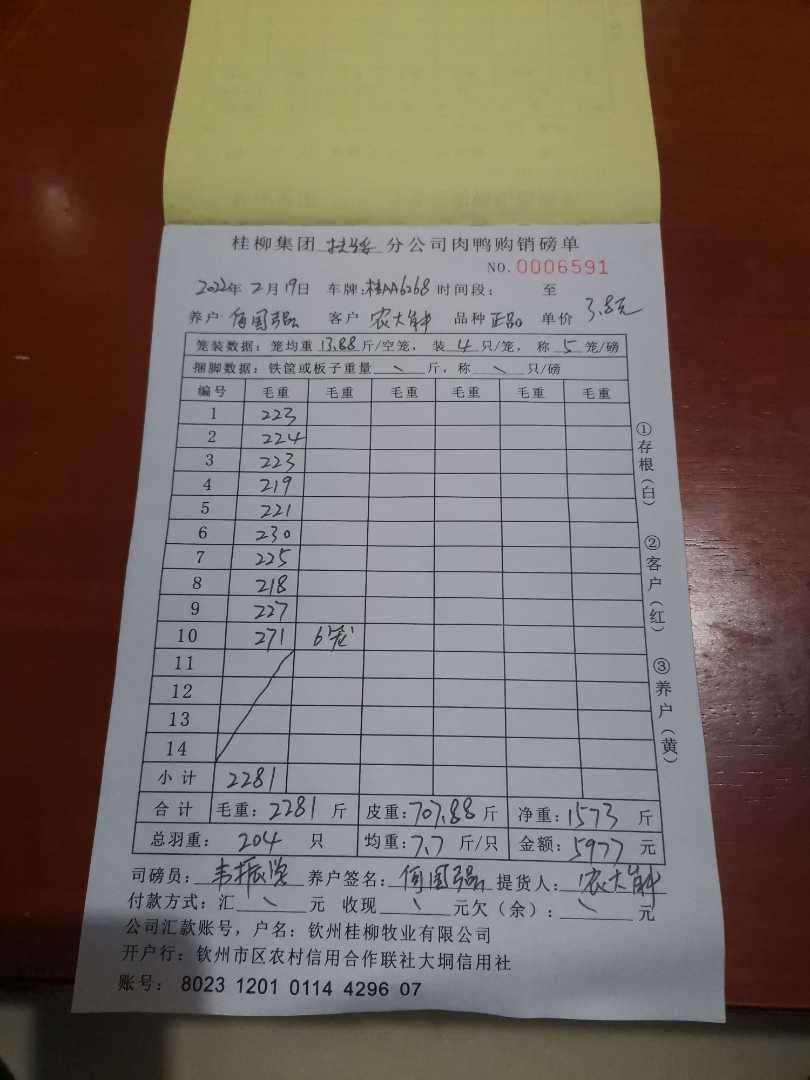 桂柳集团 扶绥 分公司肉鸭购销磅单
NO. 0006591
2022年 2月 19日 车牌:桂AA6268 时间段: 至
养户 何国强 客户 农大 品种 正品 单价 3.8元
笼装数据: 笼均重 13.88 斤/空笼, 装 4 只/笼, 称 5 笼/磅
捆脚数据: 铁筐或板子重量 \ 斤, 称 \ 只/磅
编号 毛重 毛重 毛重 毛重 毛重 毛重
1 223
2 224
3 223
4 219
5 221
6 230
7 225
8 218
9 227
10 271 6笼
11
12
13
14
小计 2281
合计 毛重: 2281 斤 皮重: 707.88 斤 净重: 1573 斤
总羽重: 204 只 均重: 7.7 斤/只 金额: 5977 元
司磅员: 韦振 养户签名: 何国强 提货人: 农大
付款方式: 汇 \ 元 收现 \ 元欠(余): \ 元
公司汇款账号, 户名: 钦州桂柳牧业有限公司
开户行: 钦州市区农村信用合作联社大垌信用社
账号: 8023 1201 0114 4296 07
①存根(白)
②客户(红)
③养户(黄)